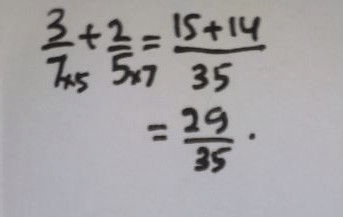 3/7×5 + 2/5×7 = 15+14/35
= 29/35 .